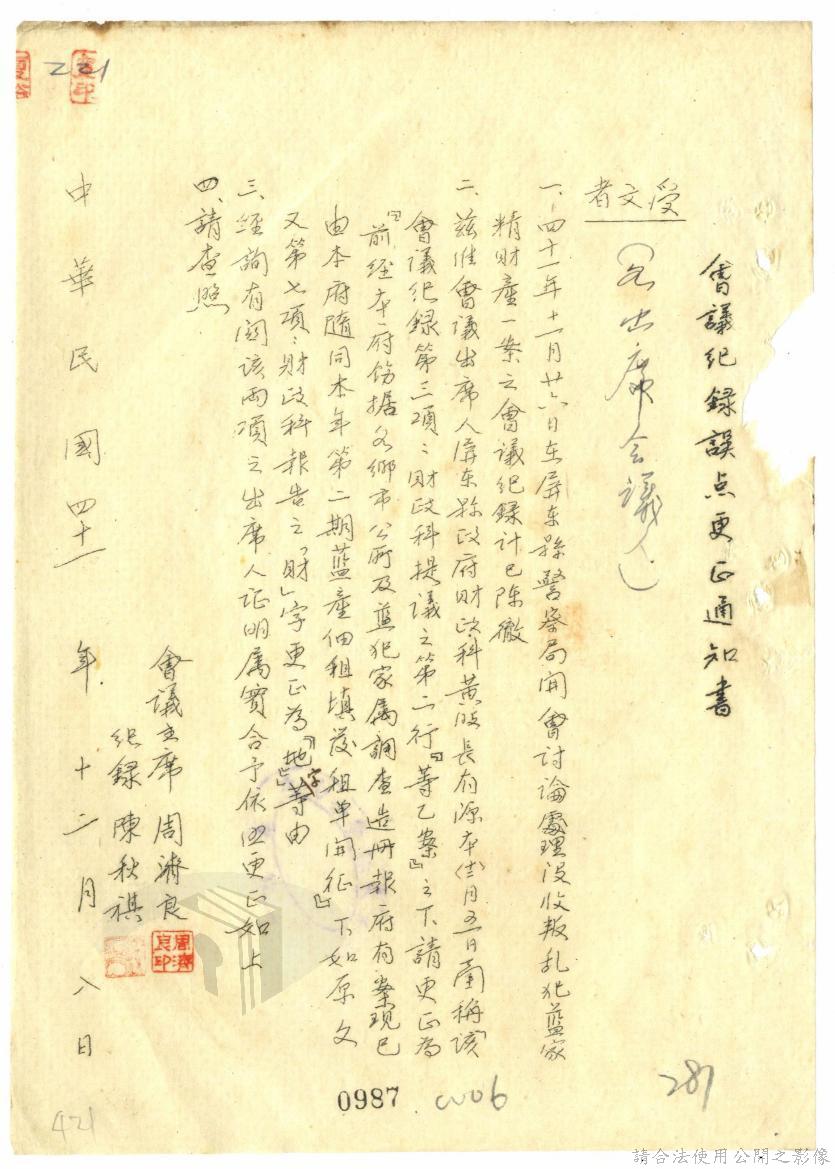 會議紀錄誤点更正通知書
受文者 (各出席会議人)
一、四十一年十一月廿六日在屏东縣警察局開會討論處理沒收叛乱犯藍家
精財產一案之會議紀錄計已陳徹
二、茲准會議出席人屏东縣政府財政科黃股長有源本(十二)月五日面稱「該
會議紀錄第三項:財政科提議之第二行『等乙案』之下請更正為
『前經本府飭据各鄉市公所及藍犯家屬調查造冊報府有案現已
由本府隨同本年第二期藍產佃租填發租单開征』下如原文
又第七項:財政科報告之『財』字更正為『地』字等由
三、經詢有関該兩項之出席人証明屬實合予依照更正如上
四、請查照
會議主席 周濟良
周濟良印
紀錄 陳秋祺
中華民國四十一年十二月八日
221
281
0987
421
請合法使用公開之影像